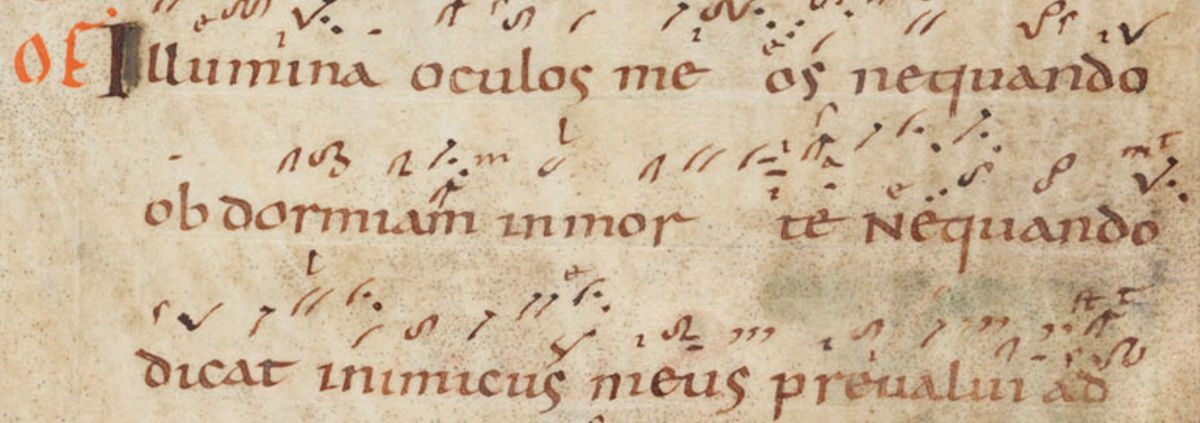 OF Illumina oculos me os nequando
ob dormiam inmor te Nequando
dicat inimicus meus preualui ad